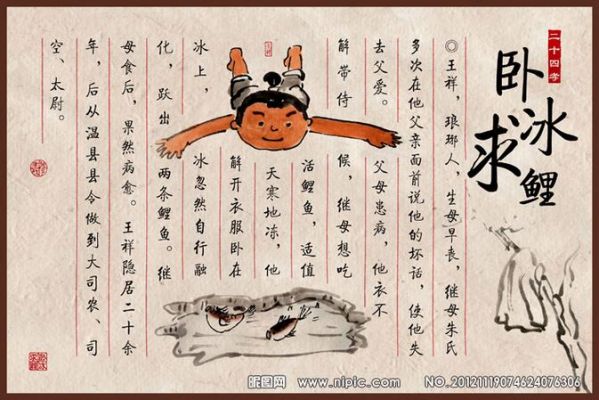 二十四孝
卧冰求鲤
◎王祥,琅琊人,生母早丧,继母朱氏
多次在他父亲面前说他的坏话,使他失
去父爱。父母患病,他衣不
解带侍候,继母想吃
活鲤鱼,适值
天寒地冻,他
解开衣服卧在
冰上,冰忽然自行融
化,跃出两条鲤鱼。继
母食后,果然病愈。王祥隐居二十余
年,后从温县县令做到大司农、司
空、太尉。
昵图网 www.nipic.com NO.20121119074624076306